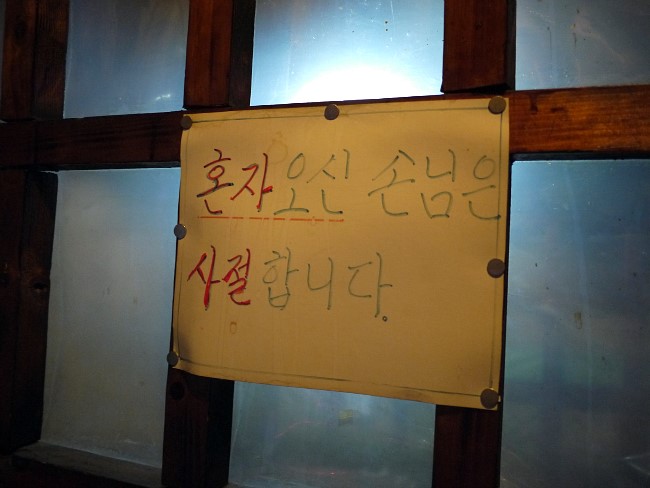 혼자 오신 손님은
사절합니다.